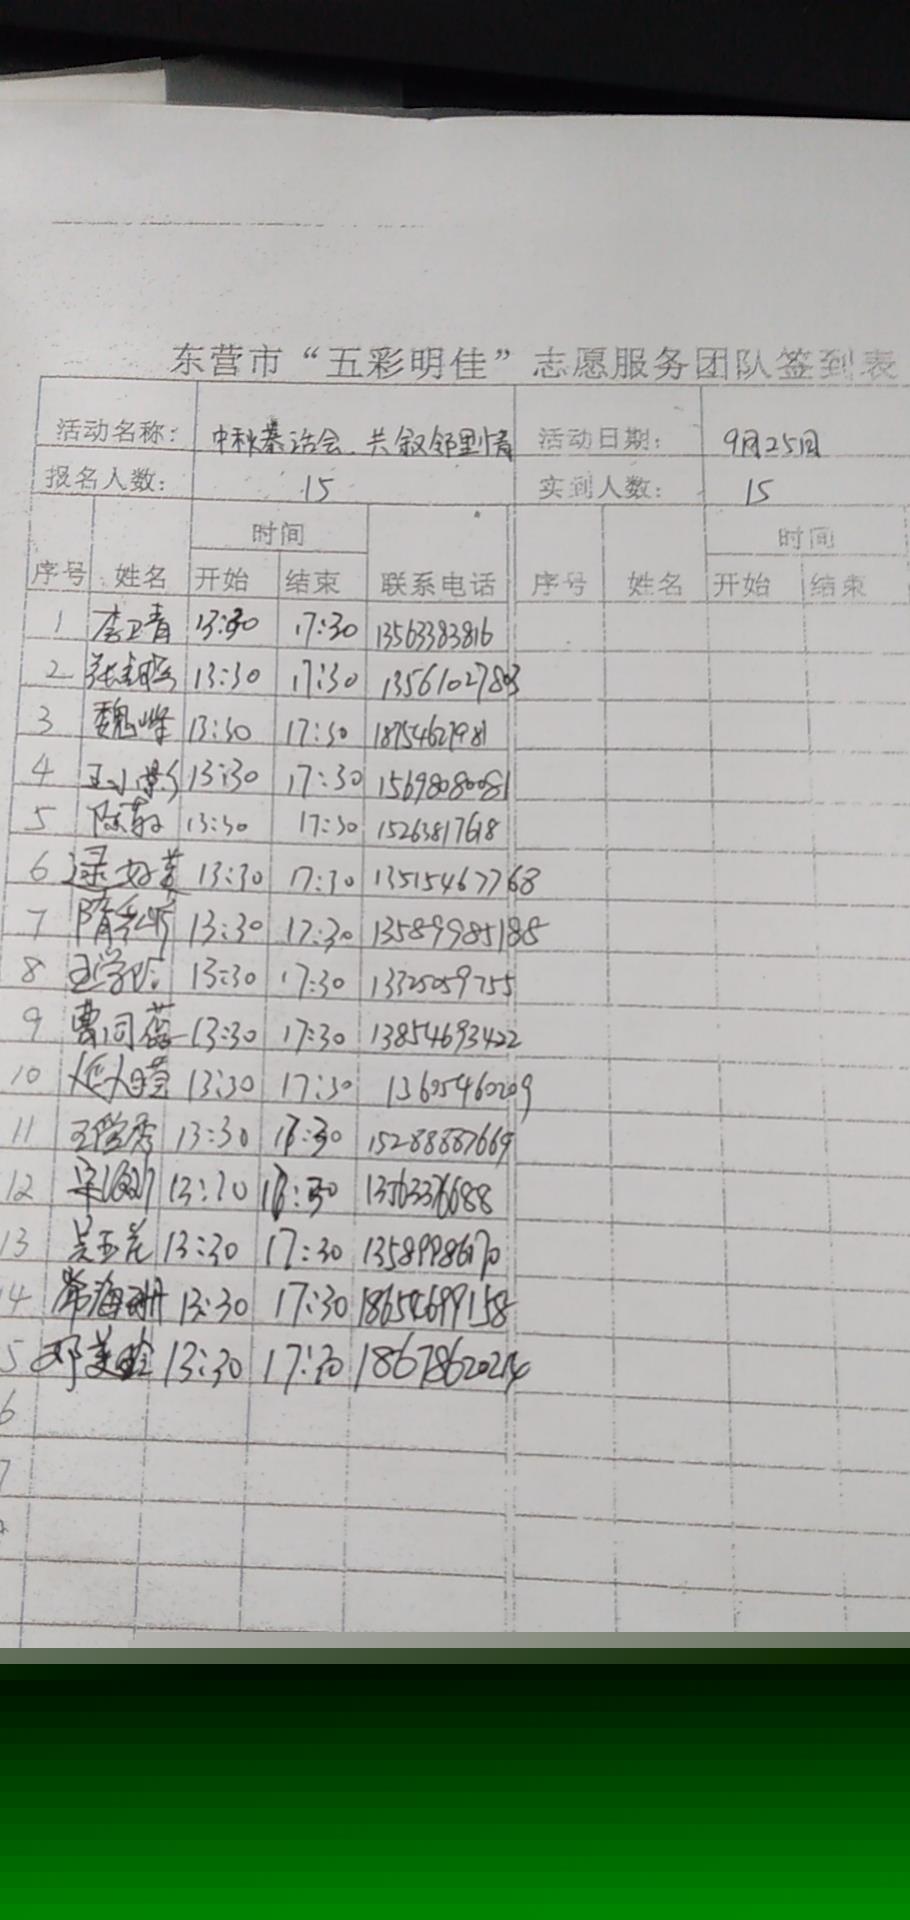 东营市“五彩明佳”志愿服务团队签到表
活动名称： 中秋茶话会、共叙邻里情 活动日期： 9月25日
报名人数： 15 实到人数： 15
时间 时间
序号 姓名 开始 结束 联系电话 序号 姓名 开始 结束
1 李卫青 13:30 17:30 13563383816
2 13:30 17:30 13561027803
3 魏峰 13:30 17:30 18754627981
4 王小影 13:30 17:30 15698080081
5 13:30 17:30 15263817618
6 逯好英 13:30 17:30 13515467768
7 隋 13:30 17:30 13589985188
8 王学 13:30 17:30 13325059755
9 曹同蓓 13:30 17:30 13854693422
10 13:30 17:30 13605460209
11 王学秀 13:30 15288887669
12 宋 13:30 13563376688
13 吴玉花 13:30 17:30 13589986170
14 常海洲 13:30 17:30 18654699158
5 邓美玲 13:30 17:30 18678620214
6
7